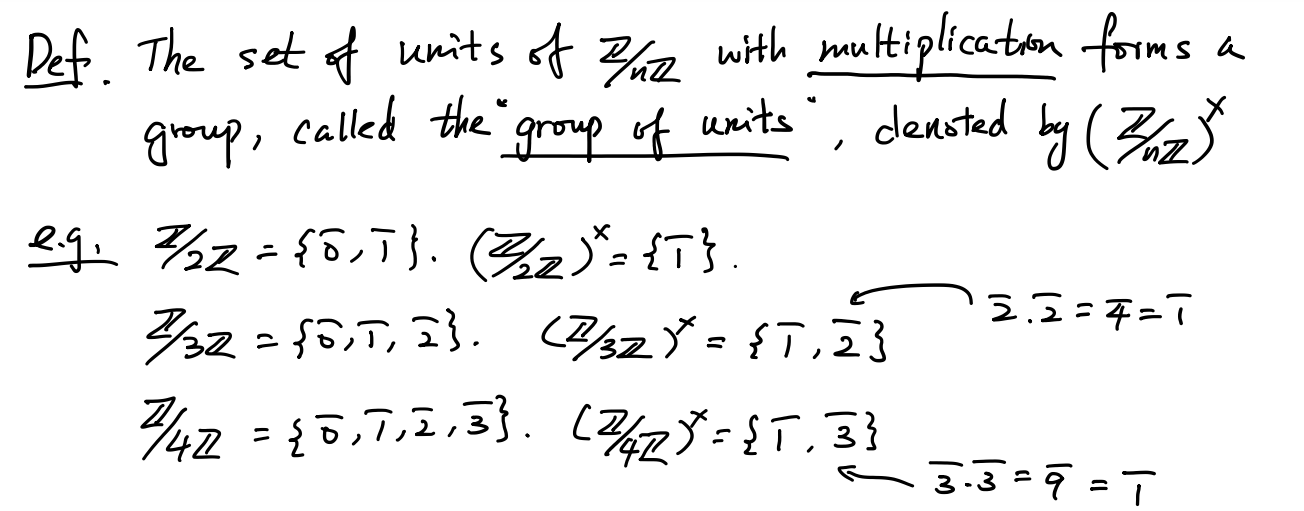 Def. The set of units of ℤ/nℤ with multiplication forms a
group, called the "group of units", denoted by (ℤ/nℤ)^×
e.g. ℤ/2ℤ = {0̅, 1̅}. (ℤ/2ℤ)^× = {1̅}.
ℤ/3ℤ = {0̅, 1̅, 2̅}. (ℤ/3ℤ)^× = {1̅, 2̅} 2̅.2̅ = 4̅ = 1̅
ℤ/4ℤ = {0̅, 1̅, 2̅, 3̅}. (ℤ/4ℤ)^× = {1̅, 3̅}
3̅.3̅ = 9̅ = 1̅